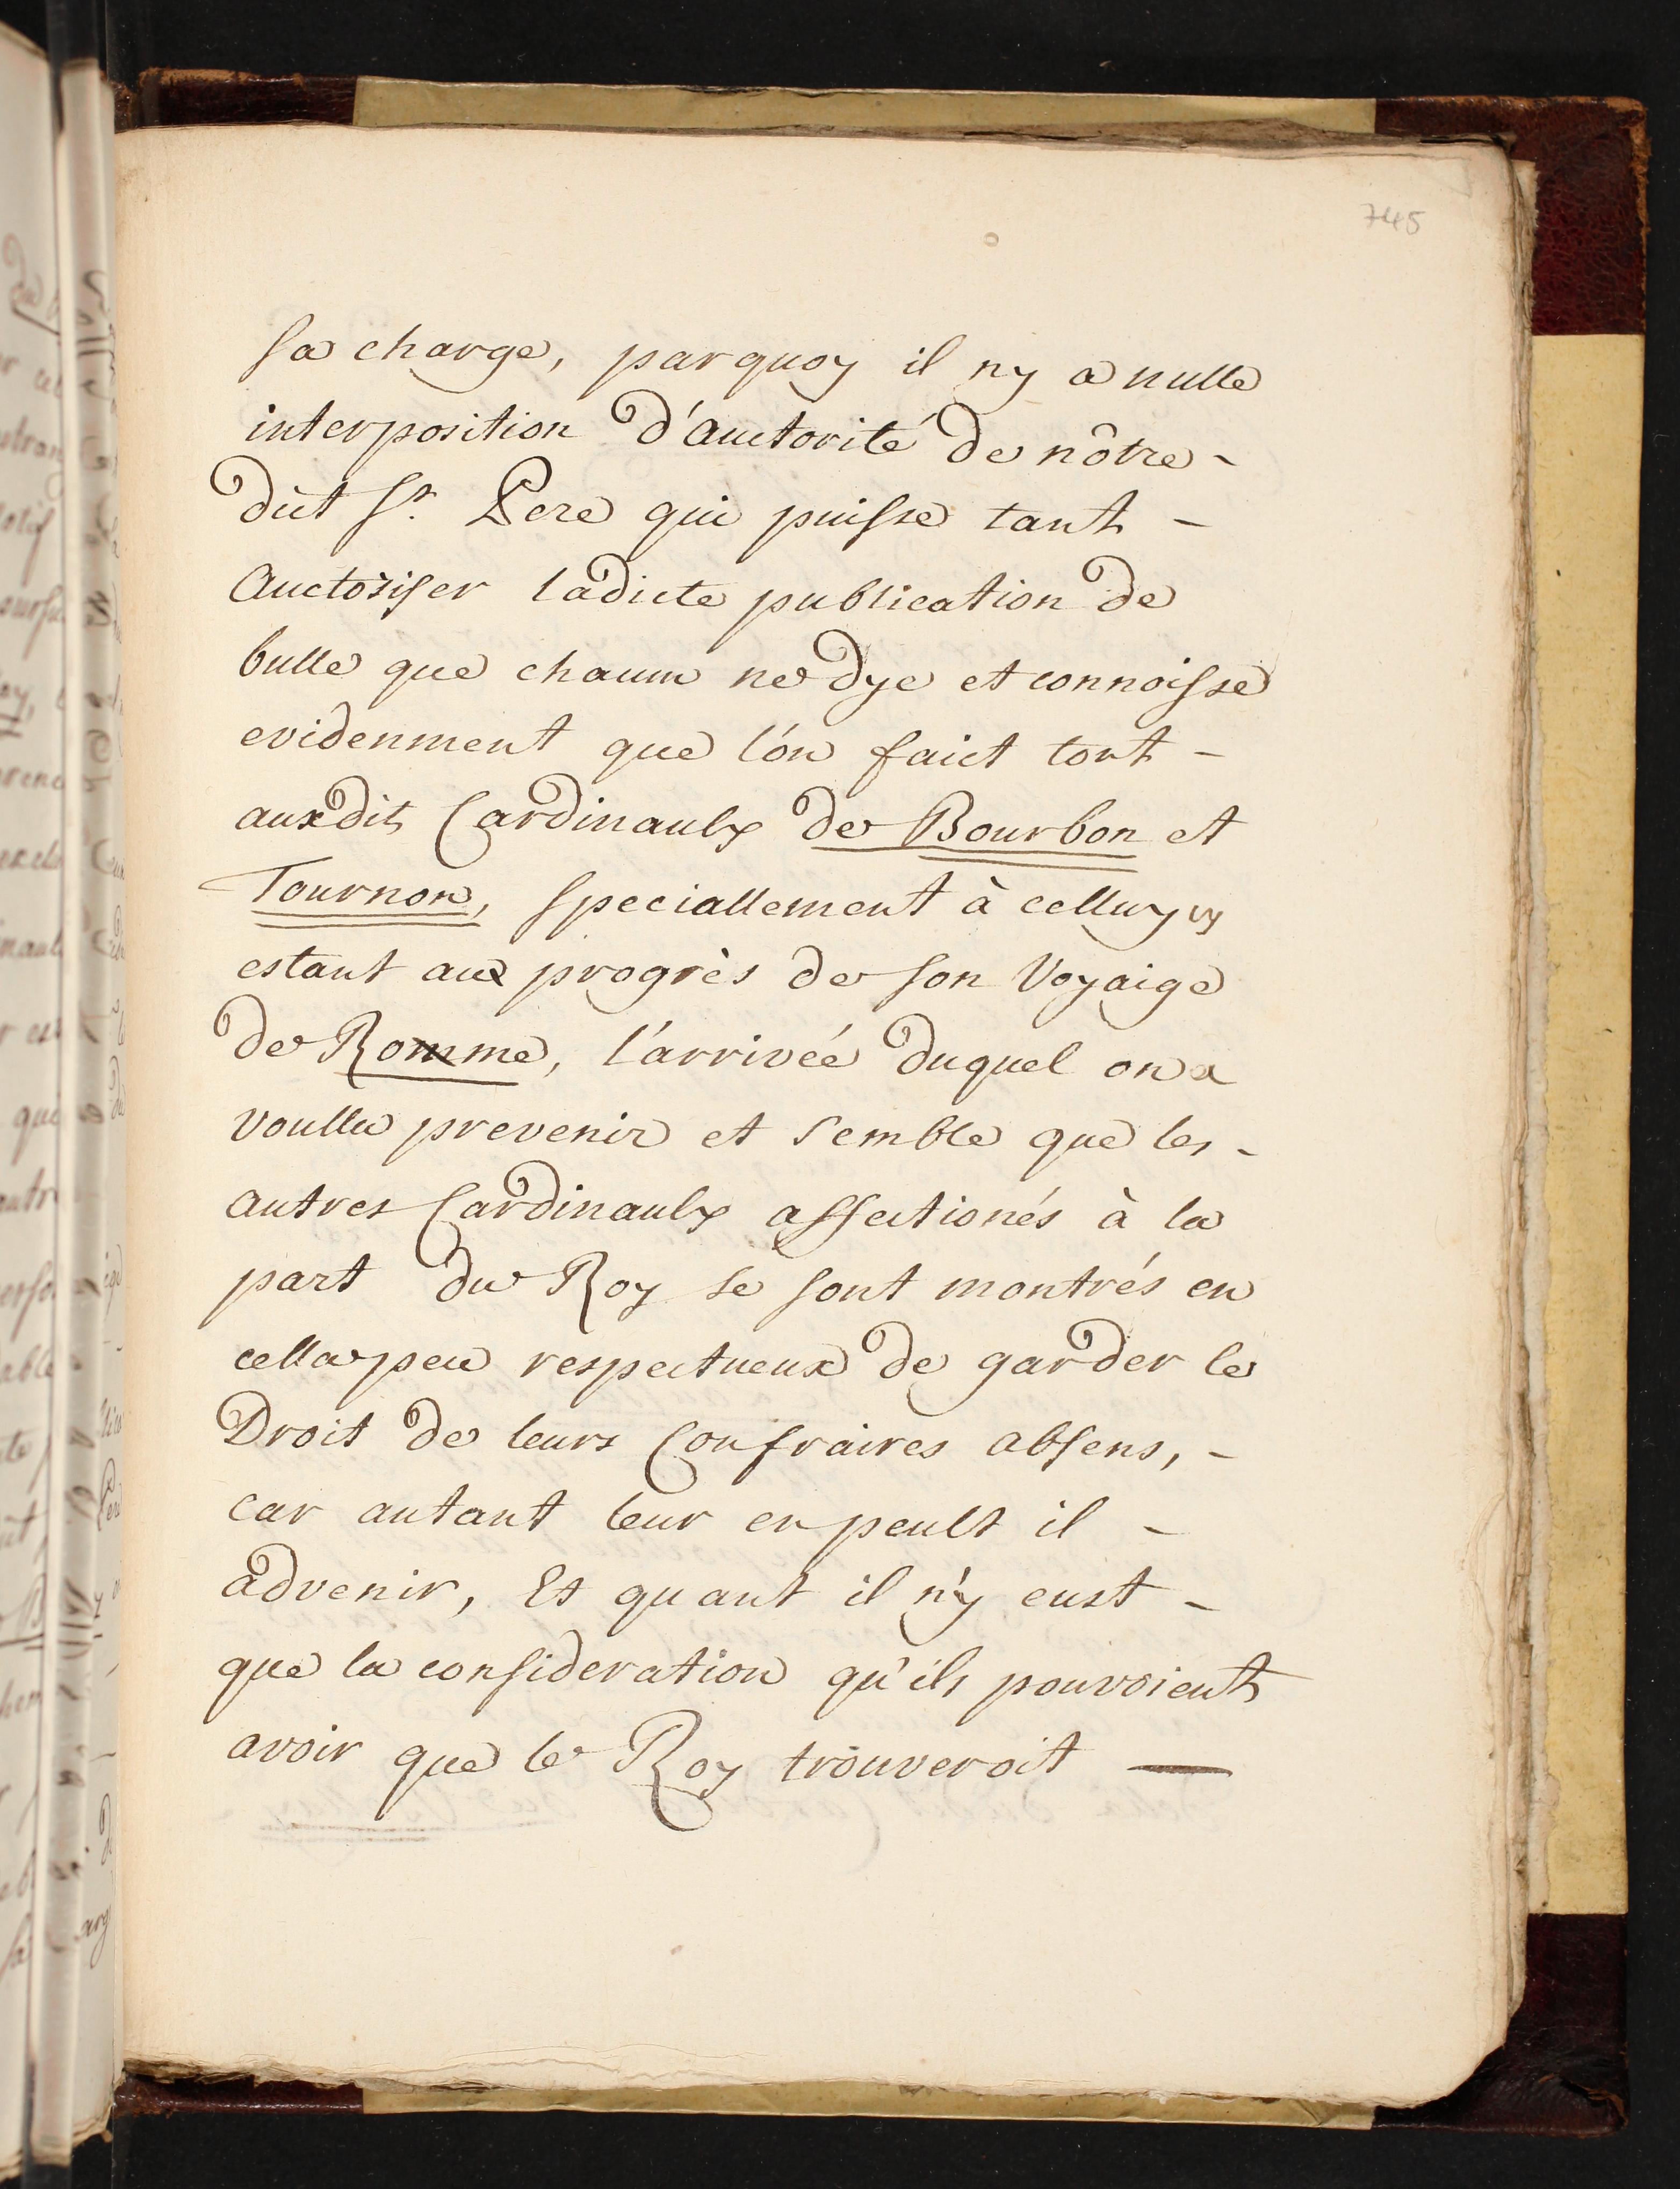 745
sa charge, parquoy il n'y a nulle
interposition d'auctorité de nôtre-
dit St. Pere qui puisse tant -
auctoriser ladicte publication de
bulle que chacun ne dye et connoisse
evidenment que l'on faict tort -
auxdits Cardinaulx de Bourbon et
Tournon, speciallement à celluy cy
estant aux progrès de son Voyaige
de Romme, l'arrivéé duquel on a
voullu prevenir et semble que les -
autres Cardinaulx affectionés à la
part du Roy se sont montrés en
cella peu respectueux de garder le
Droit de leurs Confraires absens, -
car autant leur en peult il -
advenir, Et quant il n'y eust -
que la consideration qu'ils pouvoient
avoir que le Roy trouveroit —